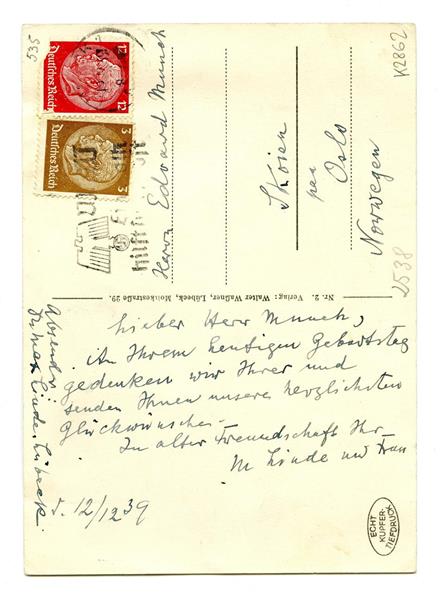 535
K2862
Deutsches Reich
12
12
Deutsches Reich
3
3
Herrn Edvard Munch
Skøien
per Oslo
Norwegen
2538
Nr. 2. Verlag: Walter Waßner, Lübeck, Moinkestraße 29.
Absender:
Dr. Max Linde. Lübeck.
Lieber Herr Munch,
An Ihrem heutigen Geburtstag
gedenken wir Ihrer und
senden Ihnen unsere herzlichsten
Glückwünsche.
In alter Freundschaft Ihr
M Linde und Frau
12/12 39
ECHT
KUPFER-
TIEFDRUCK